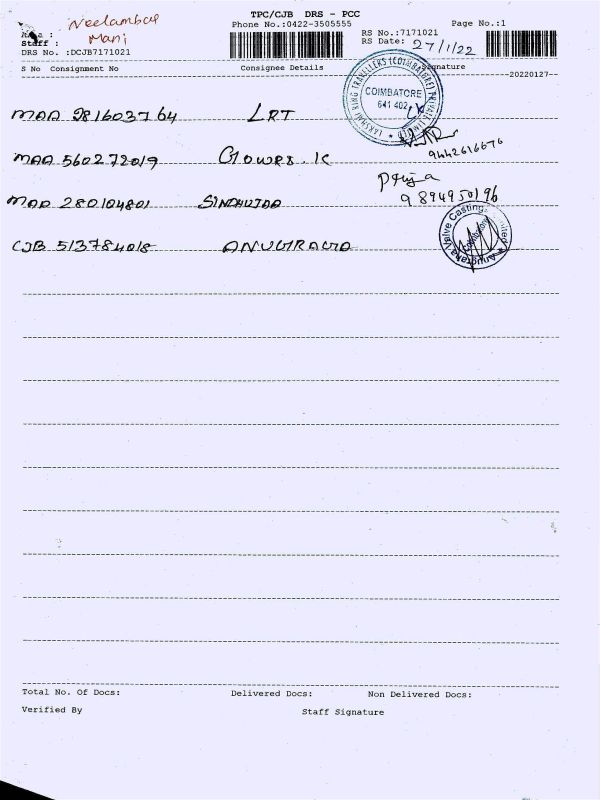 TPC/CJB DRS - PCC
Phone No.:0422-3505555
Page No.:1
Area : Neelambur
Staff : Mani
DRS No. :DCJB7171021
RS No.:7171021
RS Date: 27/1/22
S No Consignment No Consignee Details Signature
20220127
MAA 281603764 LRT
LAKSHMI RING TRAVELLERS (COIMBATORE) PRIVATE LIMITED
COIMBATORE
641 402
9442616676
MAA 560272019 Gowri. K
Priya
9894950196
MAA 280104801 SINDHUJAA
CJB 513784018 ANUGRAGA
Anugraha Valve Castings Limited
Total No. Of Docs: Delivered Docs: Non Delivered Docs:
Verified By Staff Signature